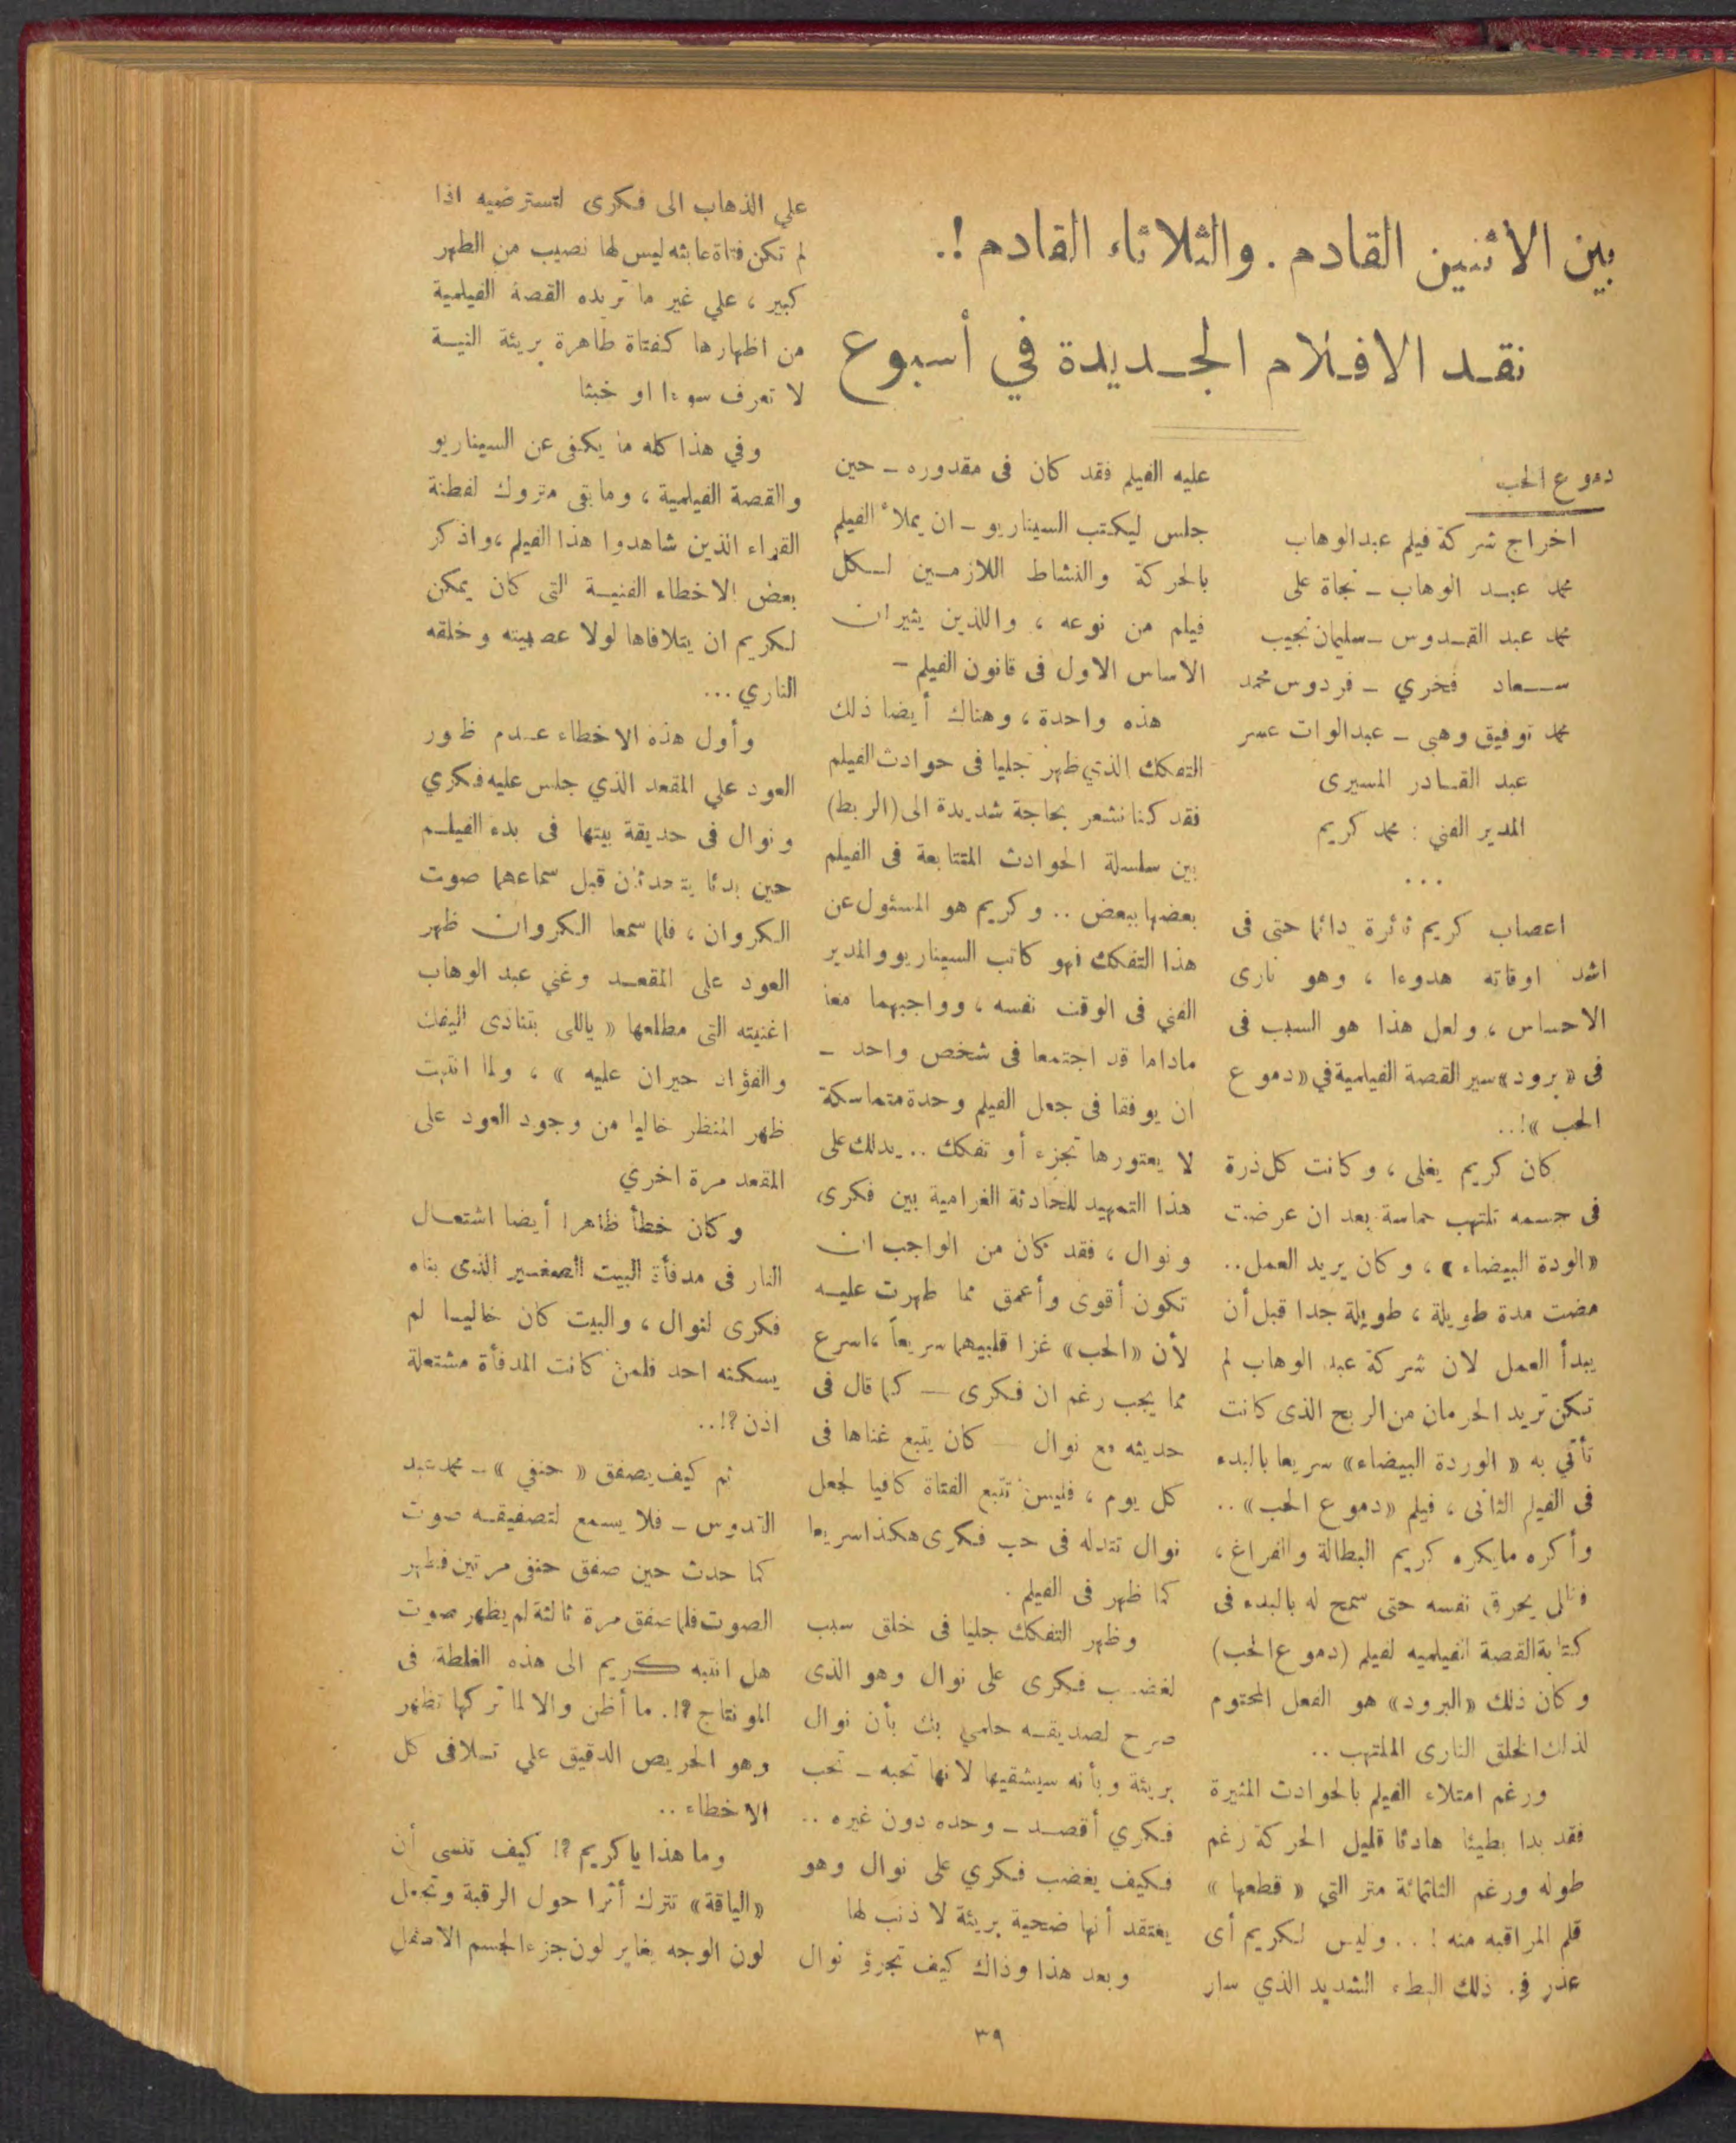 بين الاثنين القادم . والثلاثاء القادم !.
نقد الافلام الجديدة في أسبوع
دموع الحب
اخراج شركة فيلم عبد الوهاب
محمد عبد الوهاب - نجاة على
محمد عبد القدوس - سليمان نجيب
سعاد فخري - فردوس محمد
محمد توفيق وهبى - عبد الوات عسر
عبد القادر المسيرى
المدير الفني : محمد كريم
...
اعصاب كريم ثائرة دائما حتى فى
اشد اوقاته هدوءا ، وهو نارى
الاحساس ، ولعل هذا هو السبب فى
فى « برود » سير القصة الفيلمية في « دموع
الحب » !..
كان كريم يغلى ، وكانت كل ذرة
فى جسمه تلتهب حماسة بعد ان عرضت
« الودة البيضاء » ، وكان يريد العمل ..
مضت مدة طويلة ، طويلة جدا قبل أن
يبدأ العمل لان شركة عبد الوهاب لم
تكن تريد الحرمان من الربح الذى كانت
تأتي به « الوردة البيضاء » سريعا بالبدء
فى الفيلم الثانى ، فيلم « دموع الحب » ..
وأكره مايكره كريم البطالة والفراغ ،
يحرق نفسه حتى سمح له بالبدء فى
كتابة القصة الفيلميه لفيلم (دموع الحب)
وكان ذلك « البرود » هو الفعل المحتوم
لذلك الخلق النارى الملتهب ..
ورغم امتلاء الفيلم بالحوادث المثيرة
فقد بدا بطيئا هادئا قليل الحركة رغم
طوله ورغم الثلثمائة متر التي « قطعها »
قلم المراقبه منه ! .. وليس لكريم أى
عذر في ذلك البطء الشديد الذي سار
عليه الفيلم فقد كان فى مقدوره - حين
جلس ليكتب السيناريو - ان يملأ الفيلم
بالحركة والنشاط اللازمين لكل
فيلم من نوعه ، واللذين يثيران
الاساس الاول فى قانون الفيلم -
هذه واحدة ، وهناك أيضا ذلك
التفكك الذي ظهر جليا فى حوادث الفيلم
فقد كنا نشعر بحاجة شديدة الى (الربط)
بين سلسلة الحوادث المتتابعة فى الفيلم
بعضها ببعض .. وكريم هو المسئول عن
هذا التفكك فهو كاتب السيناريو والمدير
الفني فى الوقت نفسه ، وواجبهما معا
ماداما قد اجتمعا فى شخص واحد -
ان يوفقا فى جعل الفيلم وحدة متماسكة
لا يعتورها تجزء أو تفكك .. يدلك على
هذا التمهيد للحادثة الغرامية بين فكرى
ونوال ، فقد كان من الواجب ان
تكون أقوى وأعمق مما ظهرت عليه
لأن « الحب » غزا قلبيهما سريعاً ، اسرع
مما يجب رغم ان فكرى — كما قال فى
حديثه مع نوال — كان يتبع غناها فى
كل يوم ، فليس تتبع الفتاة كافيا لجعل
نوال تتدله فى حب فكرى هكذا سريعا
كما ظهر فى الفيلم .
وظهر التفكك جليا فى خلق سبب
لغضب فكرى على نوال وهو الذى
صرح لصديقه حلمي بك بأن نوال
بريئة وبأنه سيشقيها لانها تحبه - تحب
فكري أقصد - وحده دون غيره ..
فكيف يغضب فكري على نوال وهو
يعتقد أنها ضحية بريئة لا ذنب لها
وبعد هذا وذاك كيف تجرؤ نوال
علي الذهاب الى فكرى لتسترضيه اذا
لم تكن فتاة عابثه ليس لها نصيب من الطهر
كبير ، علي غير ما تريده القصة الفيلمية
من اظهارها كفتاة طاهرة بريئة النية
لا تعرف سوءا او خبثا
وفي هذا كله ما يكفى عن السيناريو
والقصة الفيلمية ، وما بقى متروك لفطنة
القراء الذين شاهدوا هذا الفيلم ، واذكر
بعض الاخطاء الفنية التى كان يمكن
لكريم ان يتلافاها لولا عصبيته وخلقه
الناري ...
وأول هذه الاخطاء عدم ظهور
العود علي المقعد الذي جلس عليه فكري
ونوال فى حديقة بيتها فى بدء الفيلم
حين بدئا يتحدثان قبل سماعهما صوت
الكروان ، فلما سمعا الكروان ظهر
العود على المقعد وغني عبد الوهاب
اغنيته التى مطلعها « ياللى بتنادى اليفك
والفؤاد حيران عليه » ، ولما انتهت
ظهر المنظر خاليا من وجود العود على
المقعد مرة اخري
وكان خطأ ظاهرا أيضا اشتعال
النار فى مدفأة البيت الصغير الذى بناه
فكرى لنوال ، والبيت كان خاليا لم
يسكنه احد فلمن كانت المدفأة مشتعلة
اذن ؟!..
ثم كيف يصفق « حنفي » - محمد عبد
القدوس - فلا يسمع لتصفيقه صوت
كما حدث حين صفق حنفى مرتين فظهر
الصوت فلما صفق مرة ثالثة لم يظهر صوت
هل انتبه كريم الى هذه الغلطة فى
المونتاج ؟!. ما أظن والا لما تركها تظهر
وهو الحريص الدقيق علي تلافى كل
الاخطاء ..
وما هذا يا كريم ؟! كيف تنسى أن
« الياقة » تترك أثرا حول الرقبة وتجعل
لون الوجه يغاير لون جزء الجسم الاسفل
٣٩